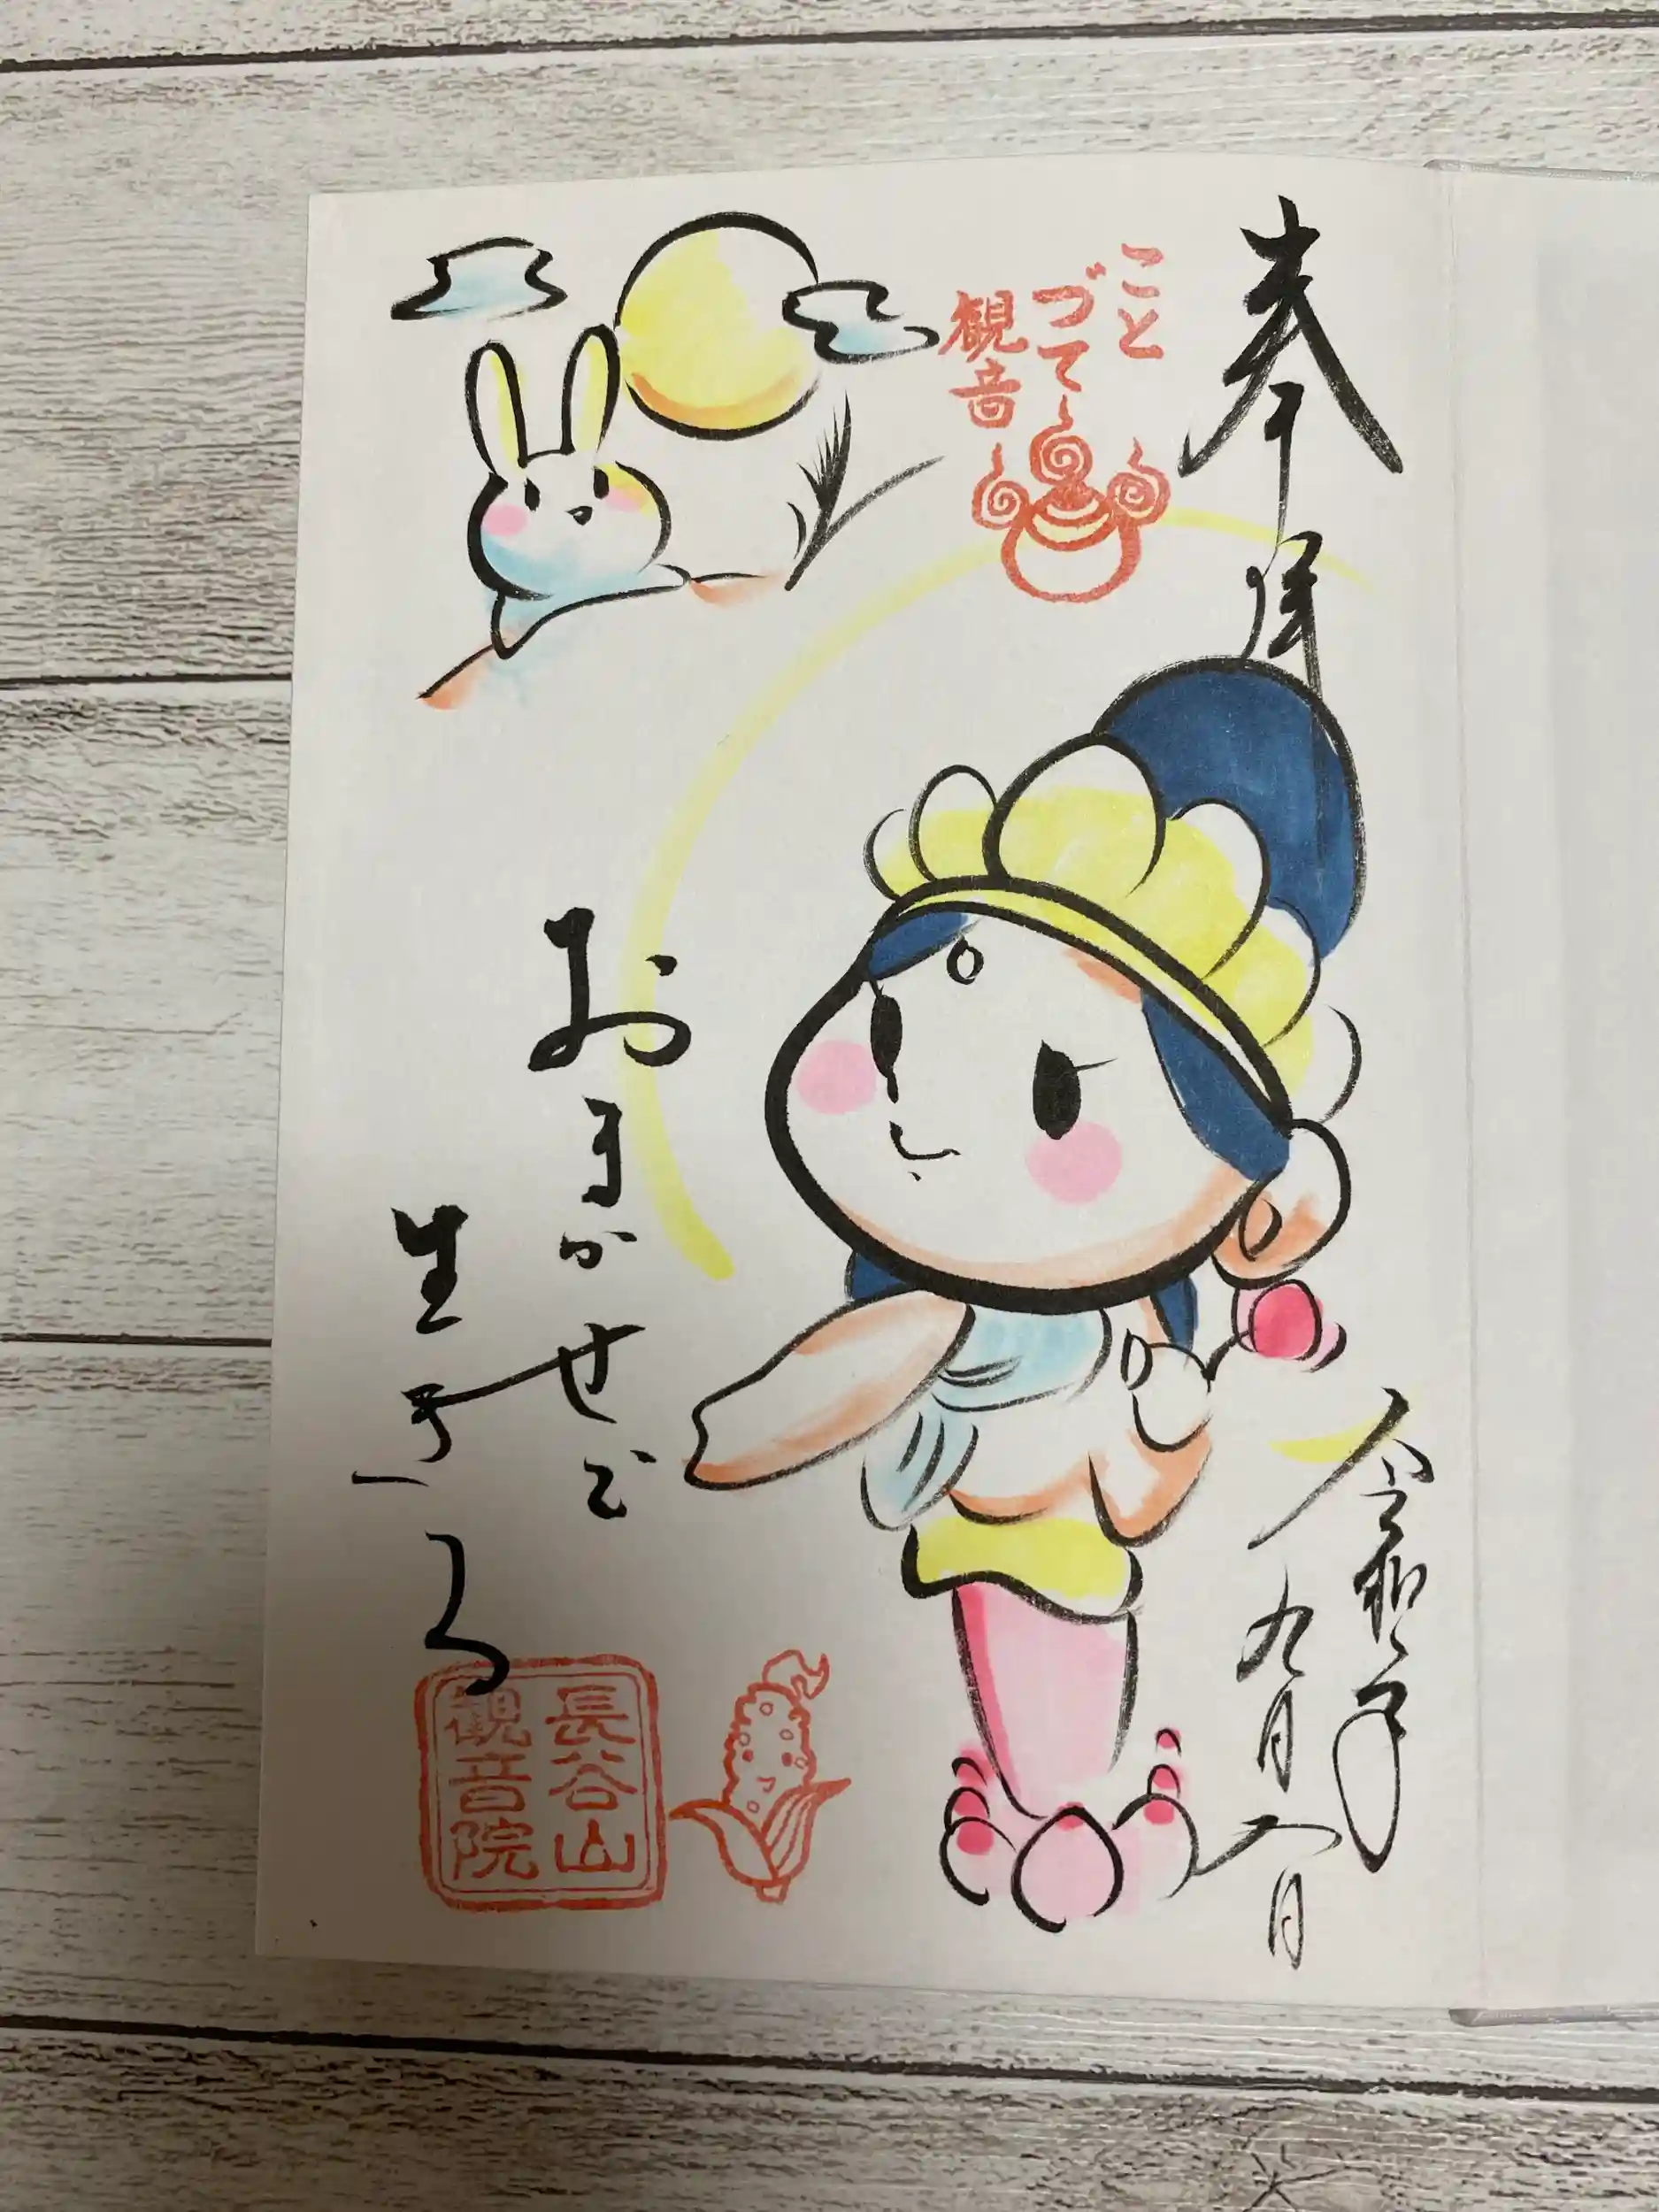 奉拝
こと
づて
観音
令和 年
九月 日
おまかせで
生きる
長谷山
観音院